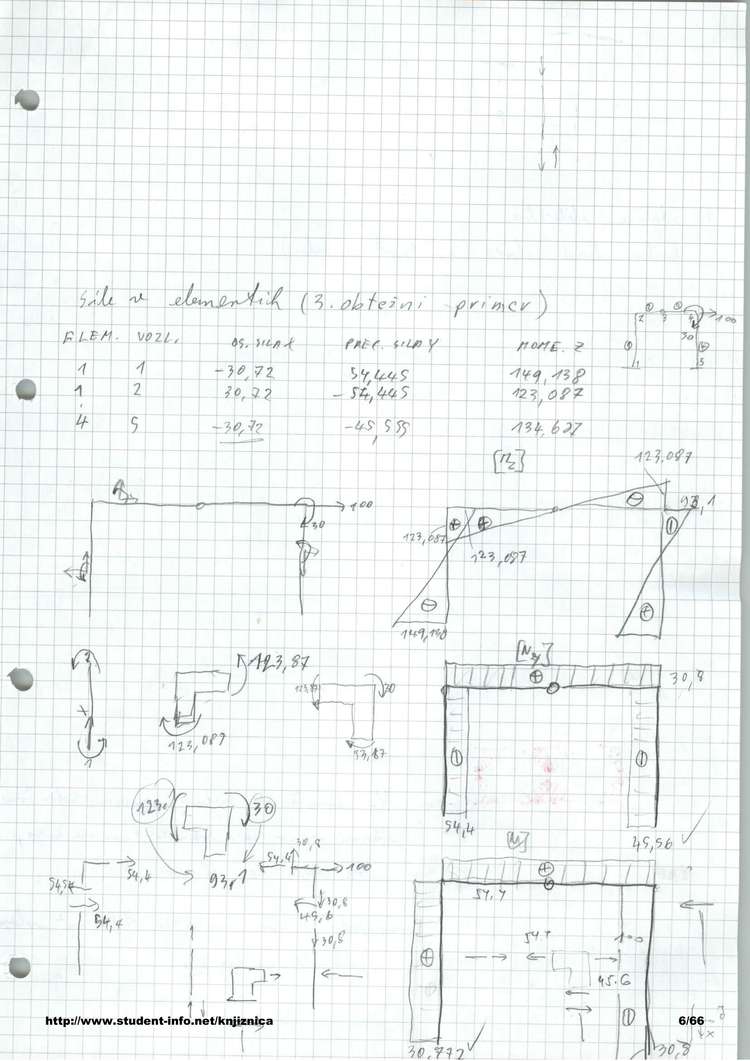 Sile v elementih (3. obtežni primer)
2 3 4 100
30
1 5
ELEM. VOZL. OS. SILA X PREČ. SILA Y MOME. Z
1 1 -30,72 54,445 149,138
1 2 30,72 -54,445 123,087
4 5 -30,72 134,687
[Mz]
123,087
93,1
100
30
123,087
123,087
123,87
30
30,8
123,089
93,87
1
54,4
45,56
123,1 30
93,1
30,8
54,4 100
54,4
54,4
30,8
45,6
30,8
54,4
54,4 100
45.6
30,772
30,8
http://www.student-info.net/knjiznica
6/66